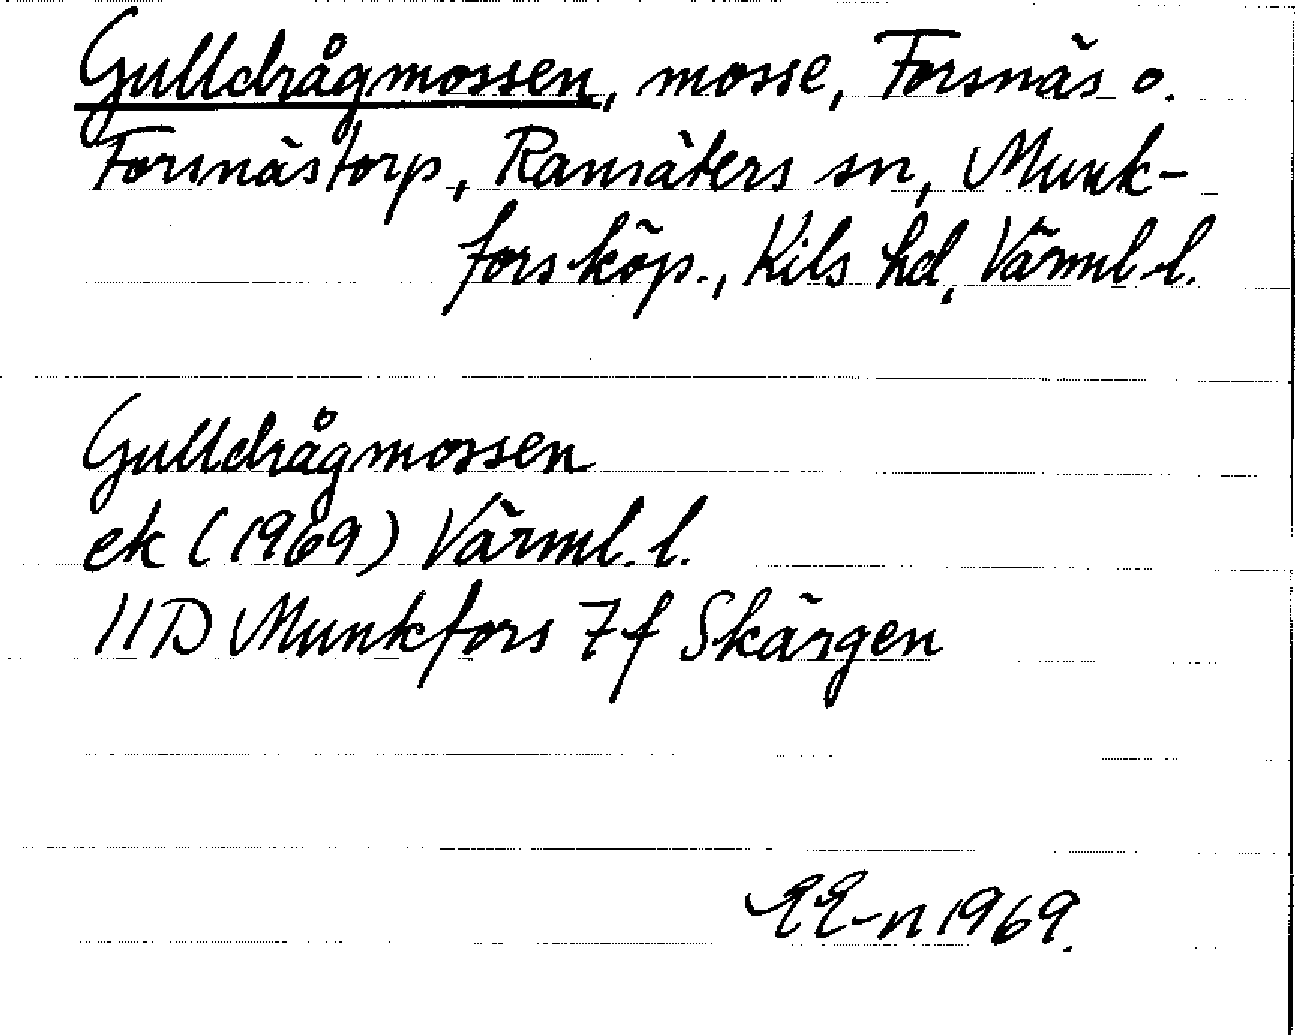 Gulldrågmossen, mosse, Forsnäs o.
Forsnästorp, Ransäters sn, Munk-
fors köp., Kils hd, Värml. l.
Gulldrågmossen
ek (1969) Värml. l.
11D Munkfors 7f Skärgen
EE-n 1969.